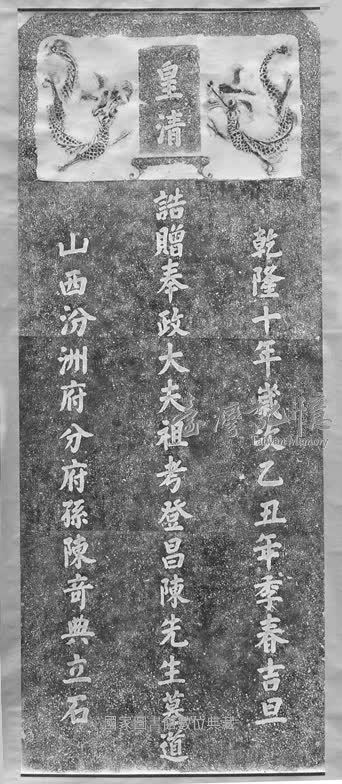 皇清
乾隆十年歲次乙丑年季春吉旦
誥贈奉政大夫祖考登昌陳先生墓道
山西汾洲府分府孫陳奇典立石
Taiwan Memory